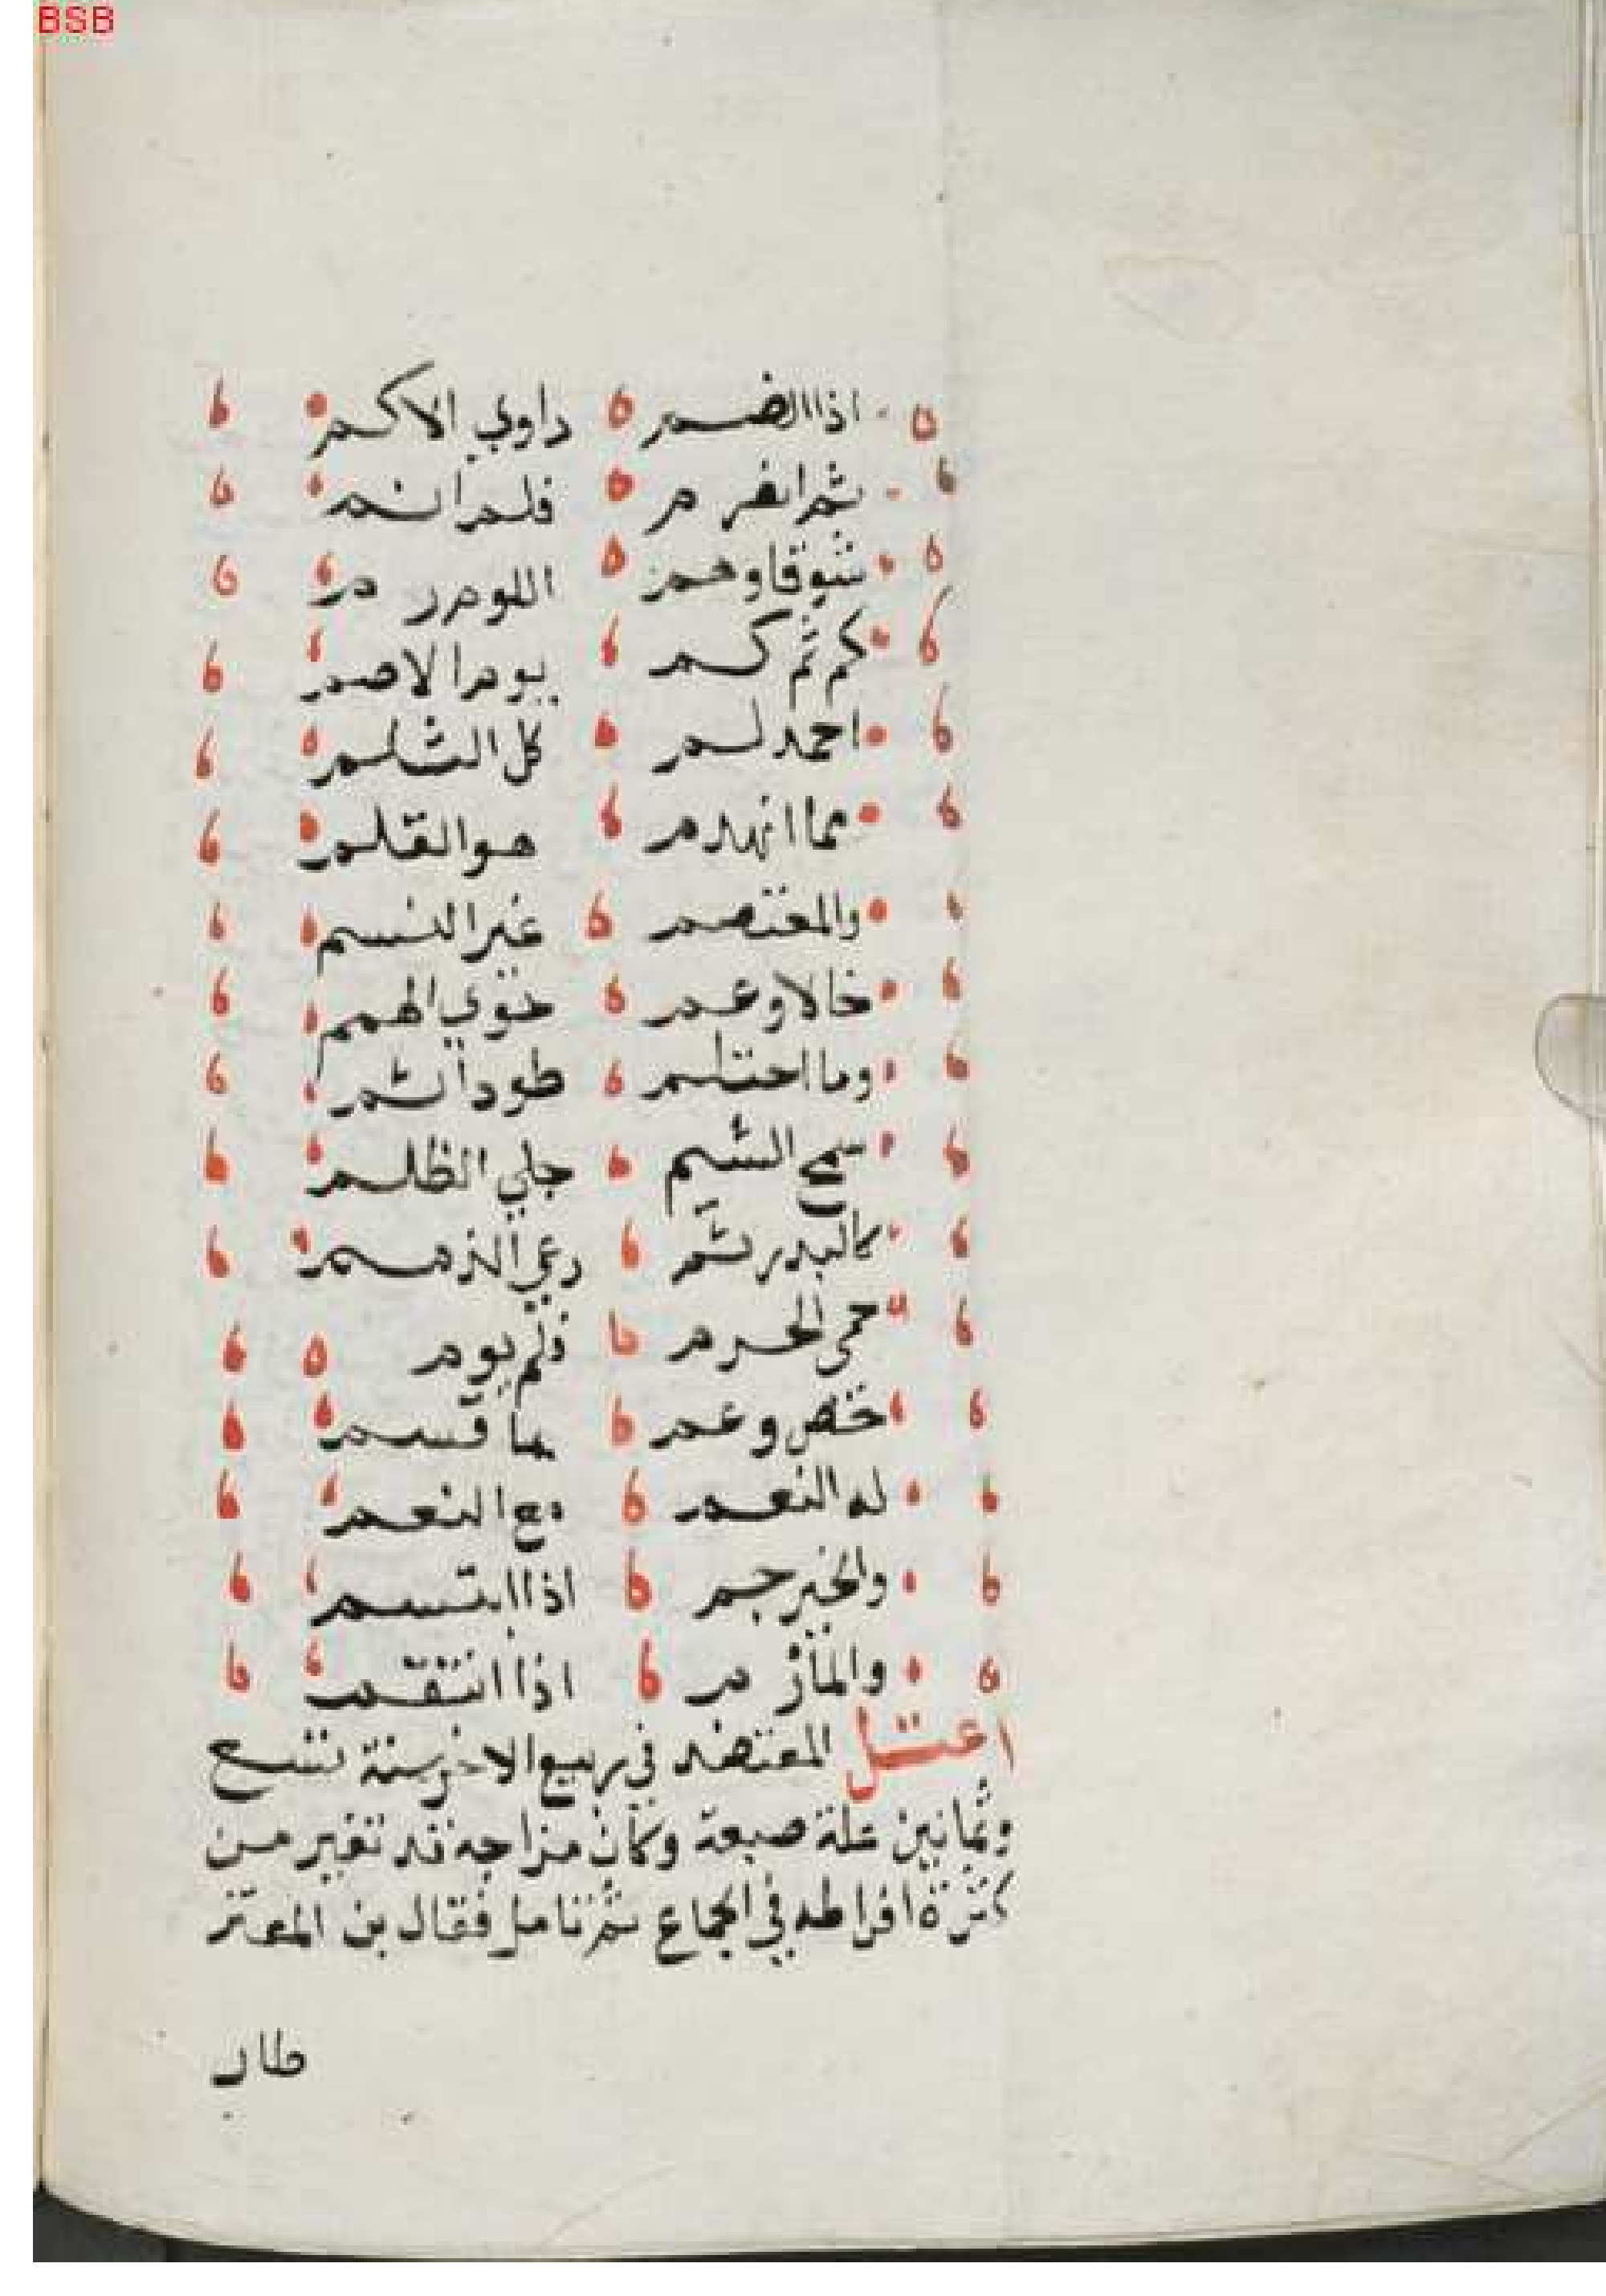 BSB
اذا الضم داوي الاكم
ثم انفرم فلم انم
شوقا وهم اللوم در م
كم ثم كم يوم الاصم
احمد لم كل الثلم
مما انهدم هو القلم
والمعتصم غير النسم
خالا وعم حوي الهمم
وما احتلم طود اشم
سمح الشيم جلي الظلم
كالبدر تم رعي الذمم
حمي الحرم فلم يوم
خص وعم بما قسم
له النعم مع النعم
والخير جم اذا ابتسم
والما زم اذا انتقم
اعتل المعتضد في ربيع الاخر سنة تسع
وثمانين علة صبعة وكان مزاجه قد تغير من
كثرة افراطه في الجماع ثم تماسل فقال بن المعتز
طار